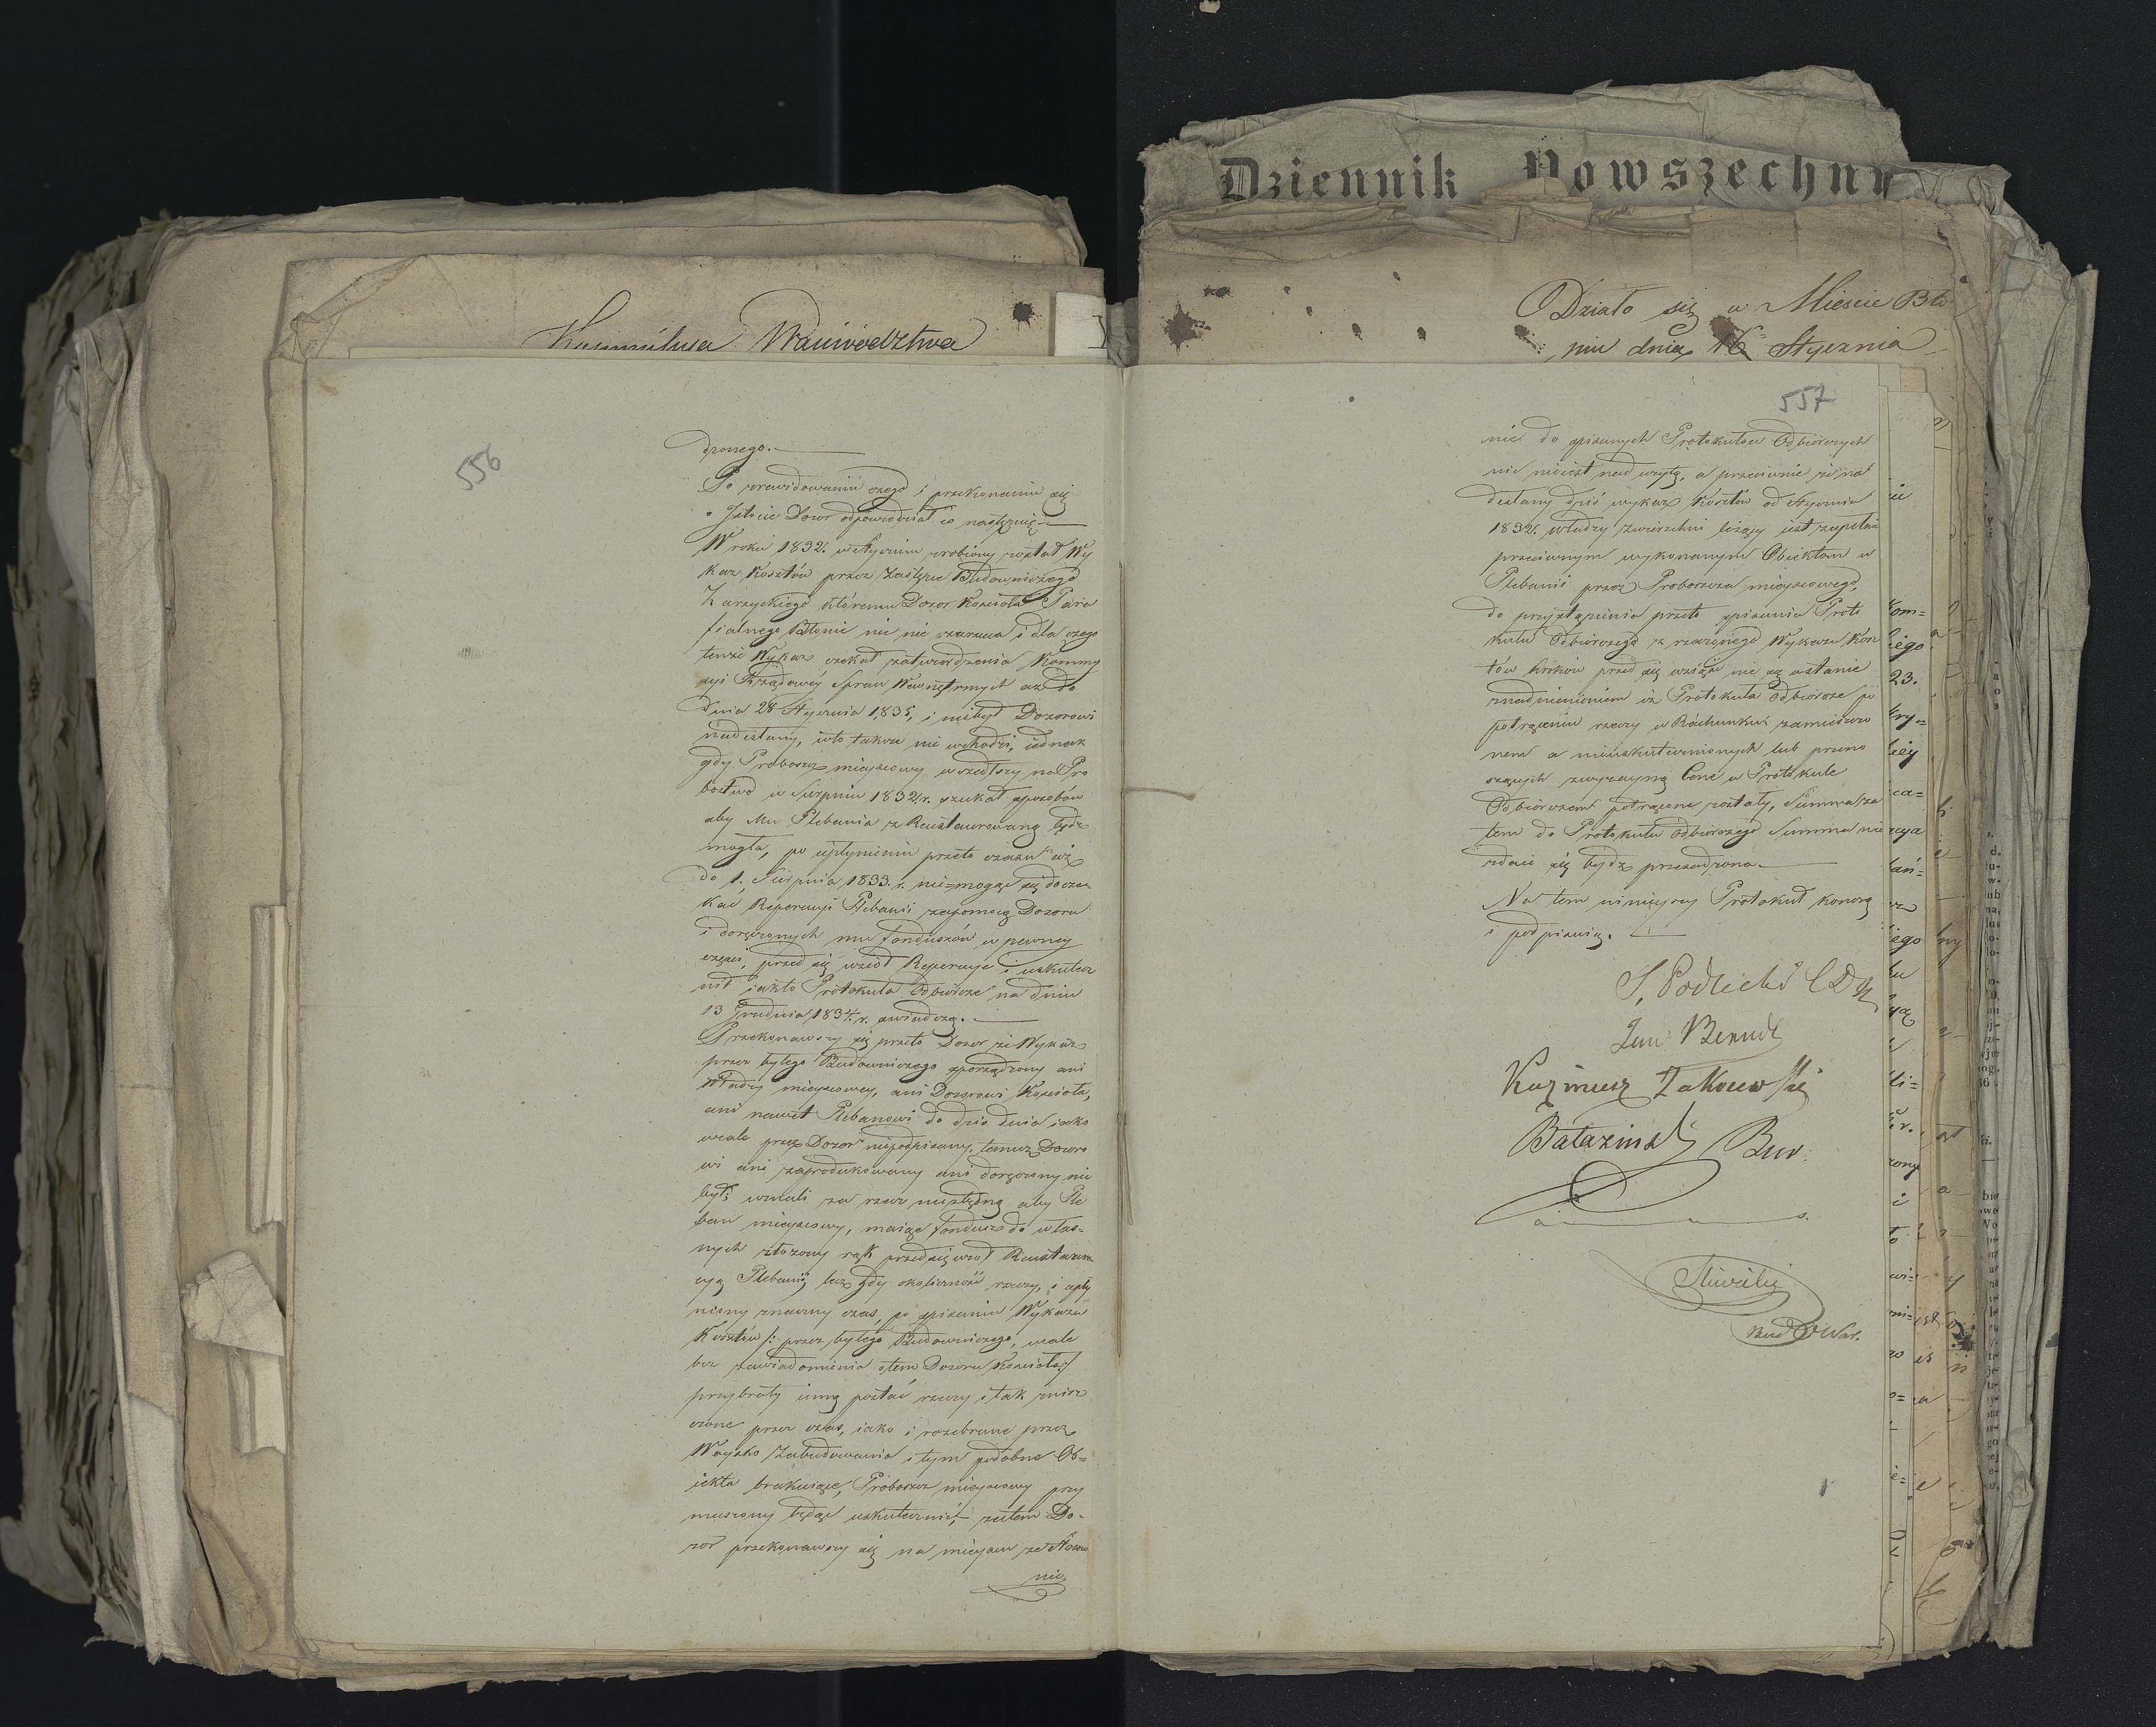 Dziennik Powszechny
Woiewództwa
Działo się w Mieście Bło
niu dnia 16 Stycznia
556
dzonego.
Po zrewidowaniu czego i przekonaniu się
o Istocie Dozor odpowiedział co następuie
W roku 1832. w Styczniu zrobiony został Wy
kaz Kosztów przez Zastępce Budowniczego
Zarzyckiego któremu Dozor Kościoła Para
fialnego Błonie nic nie zarzuca i dla czego
tenże Wykaz czekał zatwierdzenia Kommis
syi Rządowey Spraw Wewnętrznych aż do
dnia 28 Stycznia 1835, i niebył Dozorowi
nadesłany, w to także nie wchodzi, iednak
gdy Proboszcz mieyscowy wszedłszy na Pro
bostwo w Sierpniu 1832 r. szukał sposobów
aby Mu Plebania z Restaurowaną bydź
mogła, po upłynieniu przeto czasu aż
do 1. Sierpnia 1833. r. nie=mogąc się docze
kać Reperacyi Plebanii zapomocą Dozoru
i doręczonych mu funduszów w pewney
części, przed się wziął Reperacye i uskutecz
nił iakto Protokuła Odbiorcze na dniu
13 Grudnia 1834. r. zwiadczą.
Przekonawszy się przeto Dozor że Wykaz
przez byłego Budowniczego sporządzony ani
Władzy mieyscowey, ani Dozorowi Kościoła,
ani nawet Plebanowi do dziś dnia iako
wcale przez Dozor niepodpisany, temuż Dozoro
wi ani zaprodukowany ani doręczony nie
był; uznali za rzecz niezbędną aby Ple
ban mieyscowy, maiąc fundusz do włas=
nych złożony rąk przedsięwziął Restaura
cyą Plebanii, lecz gdy okoliczność rzeczy, i upły
niony znaczny czas, po spisaniu Wykazu
Kosztów /: przez byłego Budowniczego, wcale
bez zawiadomienia otem Dozoru Kościoła :/
przybrały inną postać rzeczy i tak znisz
czone przez czas, iako i rozebrane przez
Woysko Zabudowania i tym podobne Ob=
iekta brakuiące, Proboszcz mieyscowy przy
muszony będąc uskutecznić, zatem Do=
zor przekonawszy się na mieyscu że Stosow
nie
557
nie do spisanych Protokułów Odbiorczych
nic nieiest nad wyżą, a przeciwnie że na
desłany dziś wykaz Kosztów od Stycznia
1832. władzy zwierzchni leżący iest zupełnie
przeciwnym wykonanym Obiektom w
Plebanii przez Proboszcza mieyscowego,
do przystąpienia przeto spisania Proto
kułu Odbiorczego z rzeczonego Wykazu Kosz
tów kroków przed się wziąść nie są wstanie
znadmienieniem iż Protokuła Odbiorcze po
potrąceniu rzeczy w Rachunku zamieszczo
nem a nieuskutecznionych lub przeno
szących zwyczayną Cenę w Protokule
Odbiorczem potrącone zostały, Summa za
tem do Protokułu Odbiorczego Summa nie
zdaie się bydź przesadzona.
Na tem ninieyszy Protokuł kończą
i podpisuią.
Jan Berndt
Kazimierz Żakowski
Bur:
Bud O War.